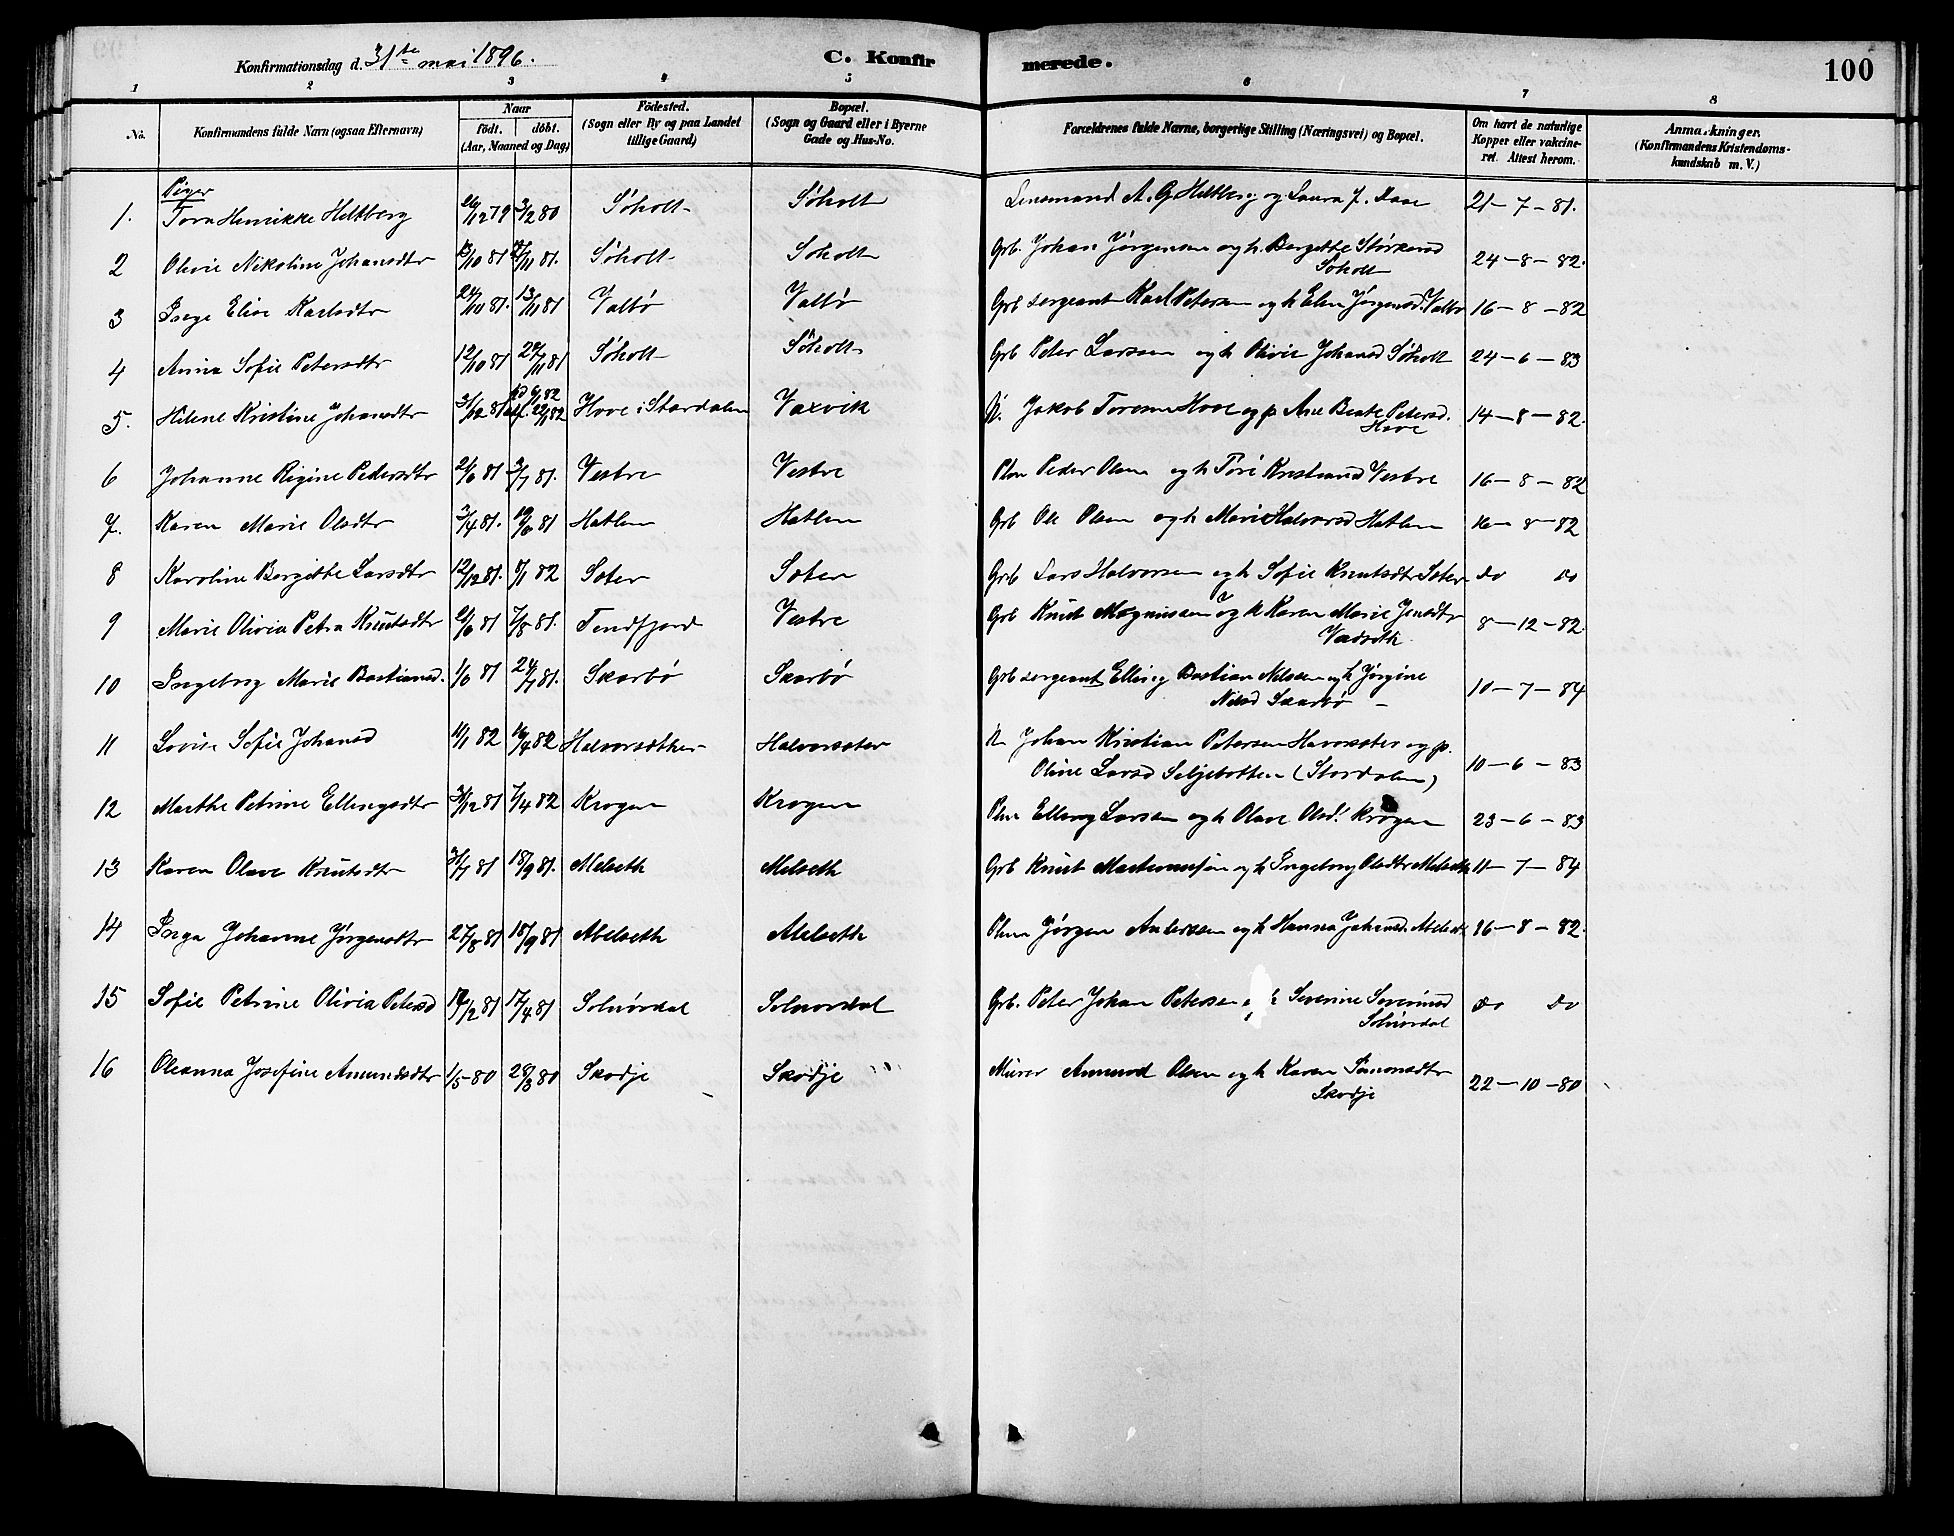 Konfirmationsdag d. 31te mai 1896.
C. Konfir
merede.
100
1 2 3 4 5 6 7 8
No.
Konfirmandens fulde Navn (ogsaa Efternavn)
Naar
födt. döbt.
(Aar, Maaned og Dag)
Födested.
(Sogn eller By og paa Landet
tillige Gaard)
Bopæl.
(Sogn og Gaard eller i Byerne
Gade og Hus-No.
Forældrenes fulde Navne, borgerlige Stilling (Næringsvei) og Bopæl.
Om havt de naturlige
Kopper eller vakcine-
ret. Attest herom.
Anmærkninger.
(Konfirmandens Kristendoms-
kundskab m. V.)
Piger
1. Tora Henrikke Heltberg 26/12 79 3/2 80 Söholt Söholt Lensmand A. G. Heltberg og Laura J. Daae 21-7-81.
2 Olivie Nikoline Johansdtr 13/10 81 /11 81. Söholt Söholt Grb. Johan Jörgensen og h. Bergitte Störkersd
Söholt 24-8-82.
3 Inge Elise Karlsdtr 24/10 81. 13/11 81 Valbö Valbö Grb sergeant Karl Petersen og h Elen Jörgensd. Valbö 16-8-82
4 Anna Sofie Petersdtr 12/10 81 29/11 81 Söholt Söholt Grb Peter Larsen og h Olivie Johansd Söholt 24-6-83
5. Helene Kristine Johansdtr 31/12 81 Hove i Stordalen Vaxvik N. Jakob Toresen Hove og p Ane Beate Petersd.
Hove 14-8-82.
6 Johanne Rigine Pedersdtr 21/6 81 3/7 81. Vestre Vestre Plm Peder Olsen og h Tori Kristiansd Vestre 16-8-82
7. Karen Marie Olsdtr 3/4 81. 19/6 81 Hatlen Hatlen Grb Ole Olsen og h Marie Halvorsd Hatlen 16-8-82
8 Karoline Bergitte Larsdtr 12/12 81. 8/1 82 Sæter Sæter Grb Lars Halvorsen og h Sofie Knutsdtr Sæter do do
9 Marie Olivia Petra Knutsdtr 21/6 81 7/8 81. Tennfjord Vestre Grb Knut Magnussen og h Karen Marie Jensdtr
8-12-82.
10 Ingeborg Marie Bastiansd. 1/6 81 24/7 81. Skarbö Skarbö Grb sergeant Elling Bastian Nelssen og h Jörgine
Nelsd Skarbö 10-7-84
11 Lovise Sofie Johansd 11/1 82 16/4 82 Halvorsæther Halvorsæter N Johan Kristian Petersen Havorsæter og p.
Oline Larsd Seljebotten (Stordalen) 10-6-83
12 Marthe Petrine Ellingsdtr 31/12 81 7/4 82 Krogen Krogen Plm Elling Larsen og h Olave Olsd. Krogen 23-6-83
13 Karen Olave Knutsdtr 31/7 81 18/9 81. Melseth Melseth Grb Knut Martinussen og h Ingeborg Olsdtr Melseth 11-7-84
14 Inga Johanne Jörgensdtr 27/8 81 18/9 81 Abelseth Abelseth Plm Jörgen Andersen og h Hanna Johansd. Abelseth 16-8-82.
15 Sofie Petrine Olivia Petersd 17/2 81 17/4 81 Solnördal Solnordal Grb. Peter Johan Petersen og h Severine Severinsd
Solnördal do do
16 Oleanna Josefine Amundsdtr 1/5-80 28/3 80 Skodje Skodje Murer Amund Olsen og h Karen Simonsdtr
Skodje 22-10-80